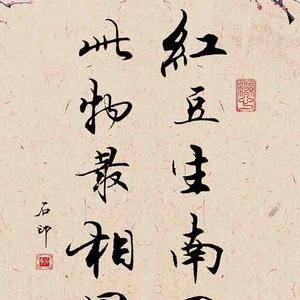 紅豆生南
此物最相
石印